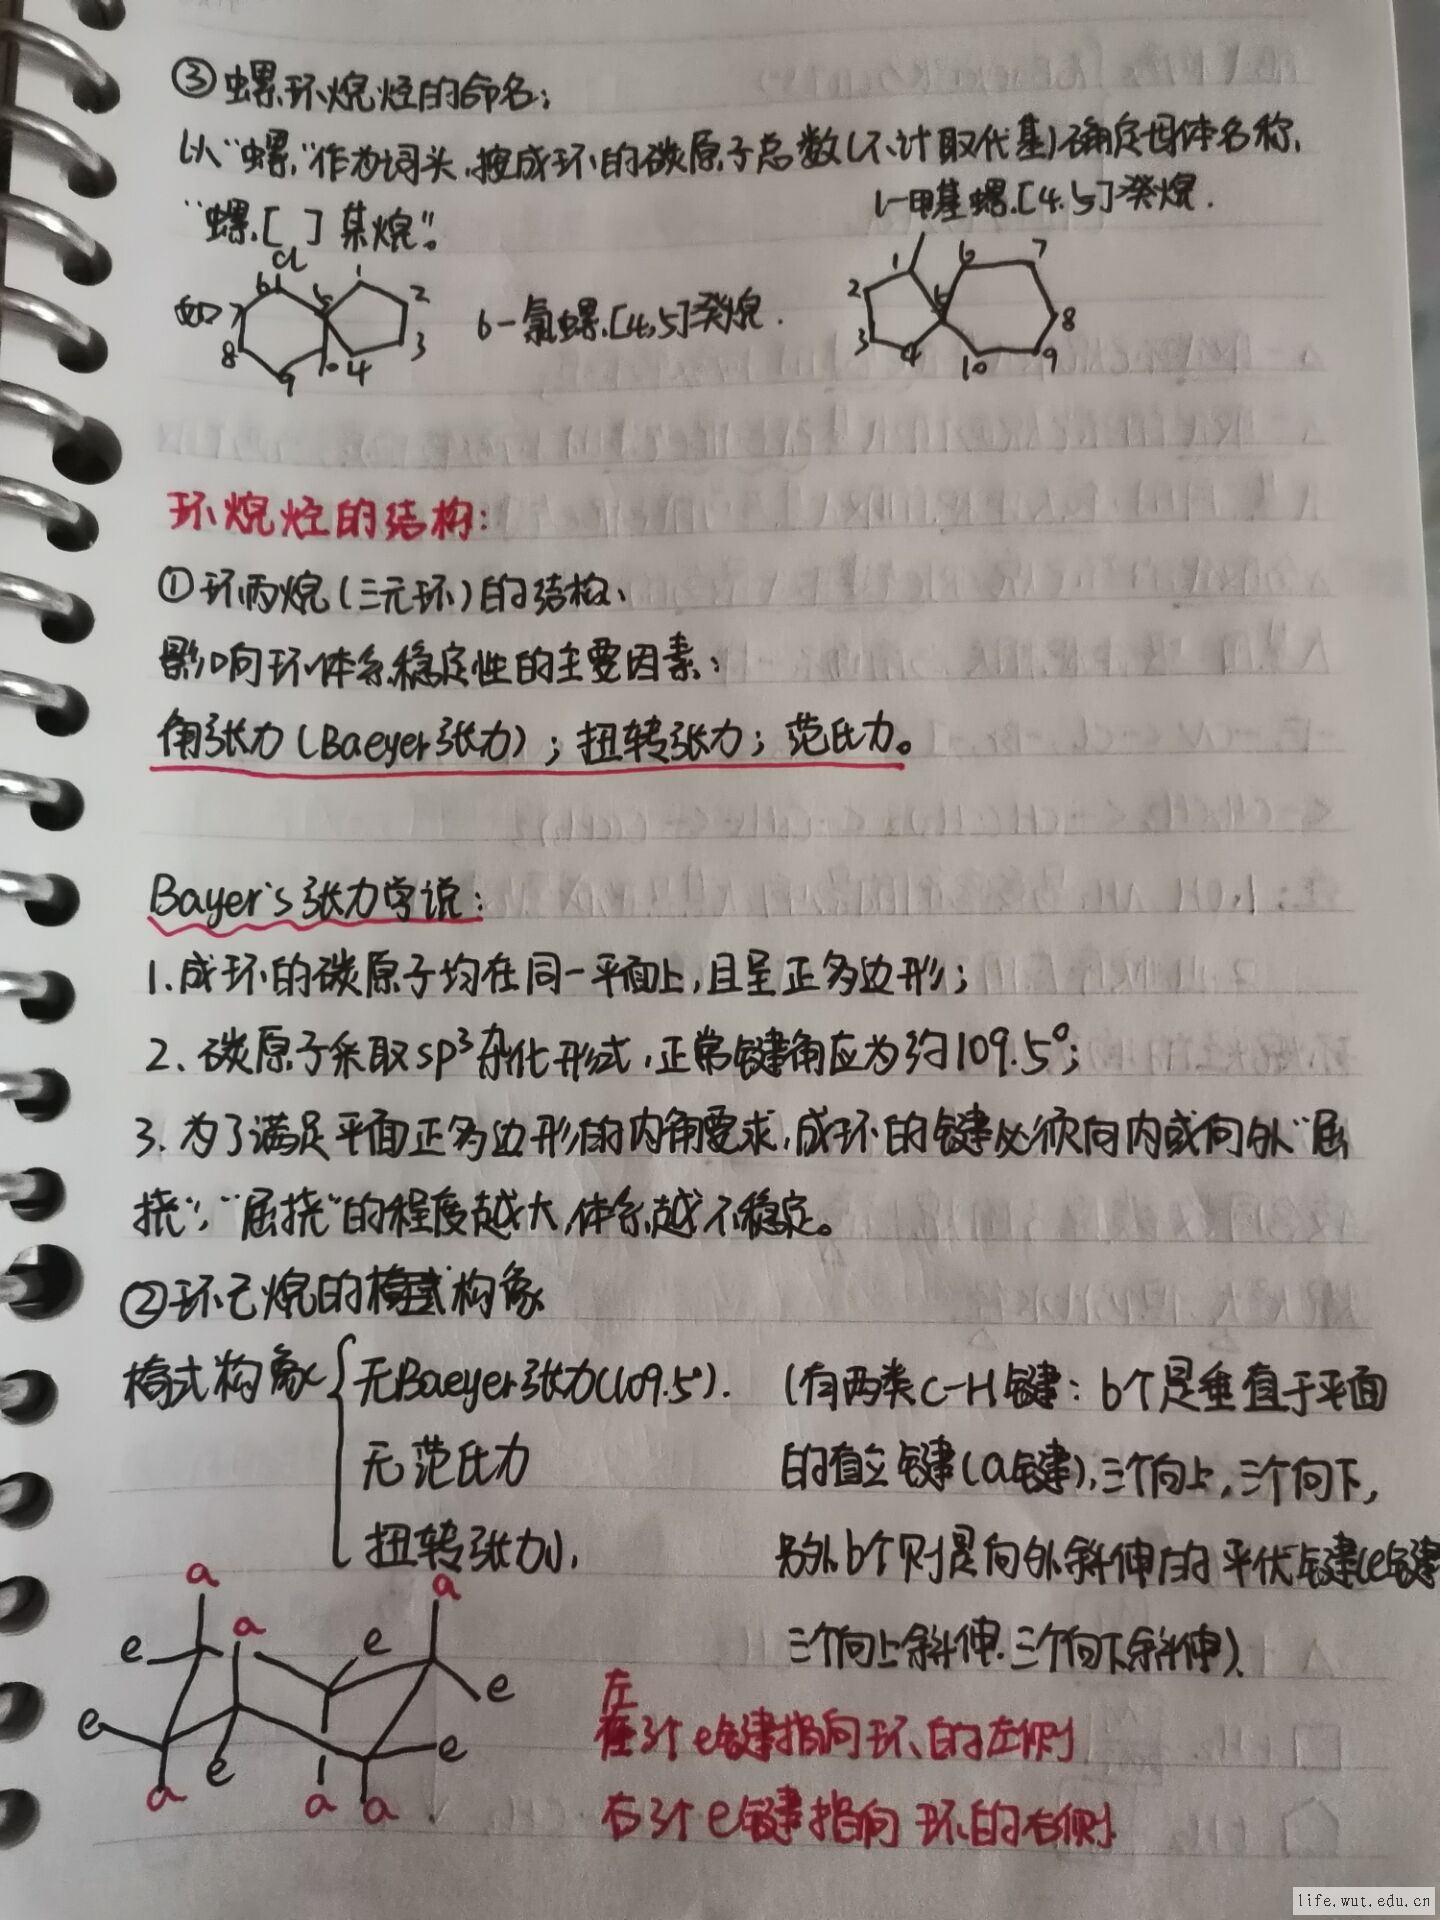 ③螺环烷烃的命名;
以“螺”作为词头,按成环的碳原子总数(不计取代基)确定母体名称,
“螺[ ]某烷”。
1-甲基螺[4,5]癸烷.
Cl
6 5 1 2 3 4 10 9 8 7
6-氯螺[4,5]癸烷.
1 2 3 4 5 6 7 8 9 10
环烷烃的结构:
①环丙烷(三元环)的结构、
影响环体系稳定性的主要因素:
角张力(Baeyer张力);扭转张力;范氏力。
Bayer's张力学说:
1.成环的碳原子均在同一平面上,且呈正多边形;
2、碳原子采取sp³杂化形式,正常键角应为约109.5°;
3.为了满足平面正多边形的内角要求,成环的键必须向内或向外“屈
挠”,“屈挠”的程度越大,体系越不稳定。
②环己烷的椅式构象
椅式构象{无Baeyer张力(109.5°).
无范氏力
扭转张力小.
(有两类C-H键:6个是垂直于平面
的直立键(a键),三个向上,三个向下,
另外6个则是向外斜伸的平伏键(e键
三个向上斜伸.三个向下斜伸).
a a a
e e e
e e e
a a a
左
3个e键指向环的左侧
右3个e键指向环的右侧.
life.wut.edu.cn